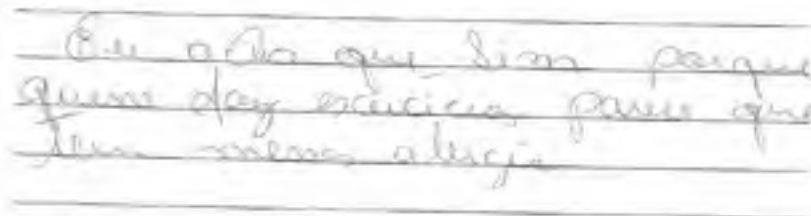 Eu acho que sim porque
quem faz exercicios parece que
tem menos alergia